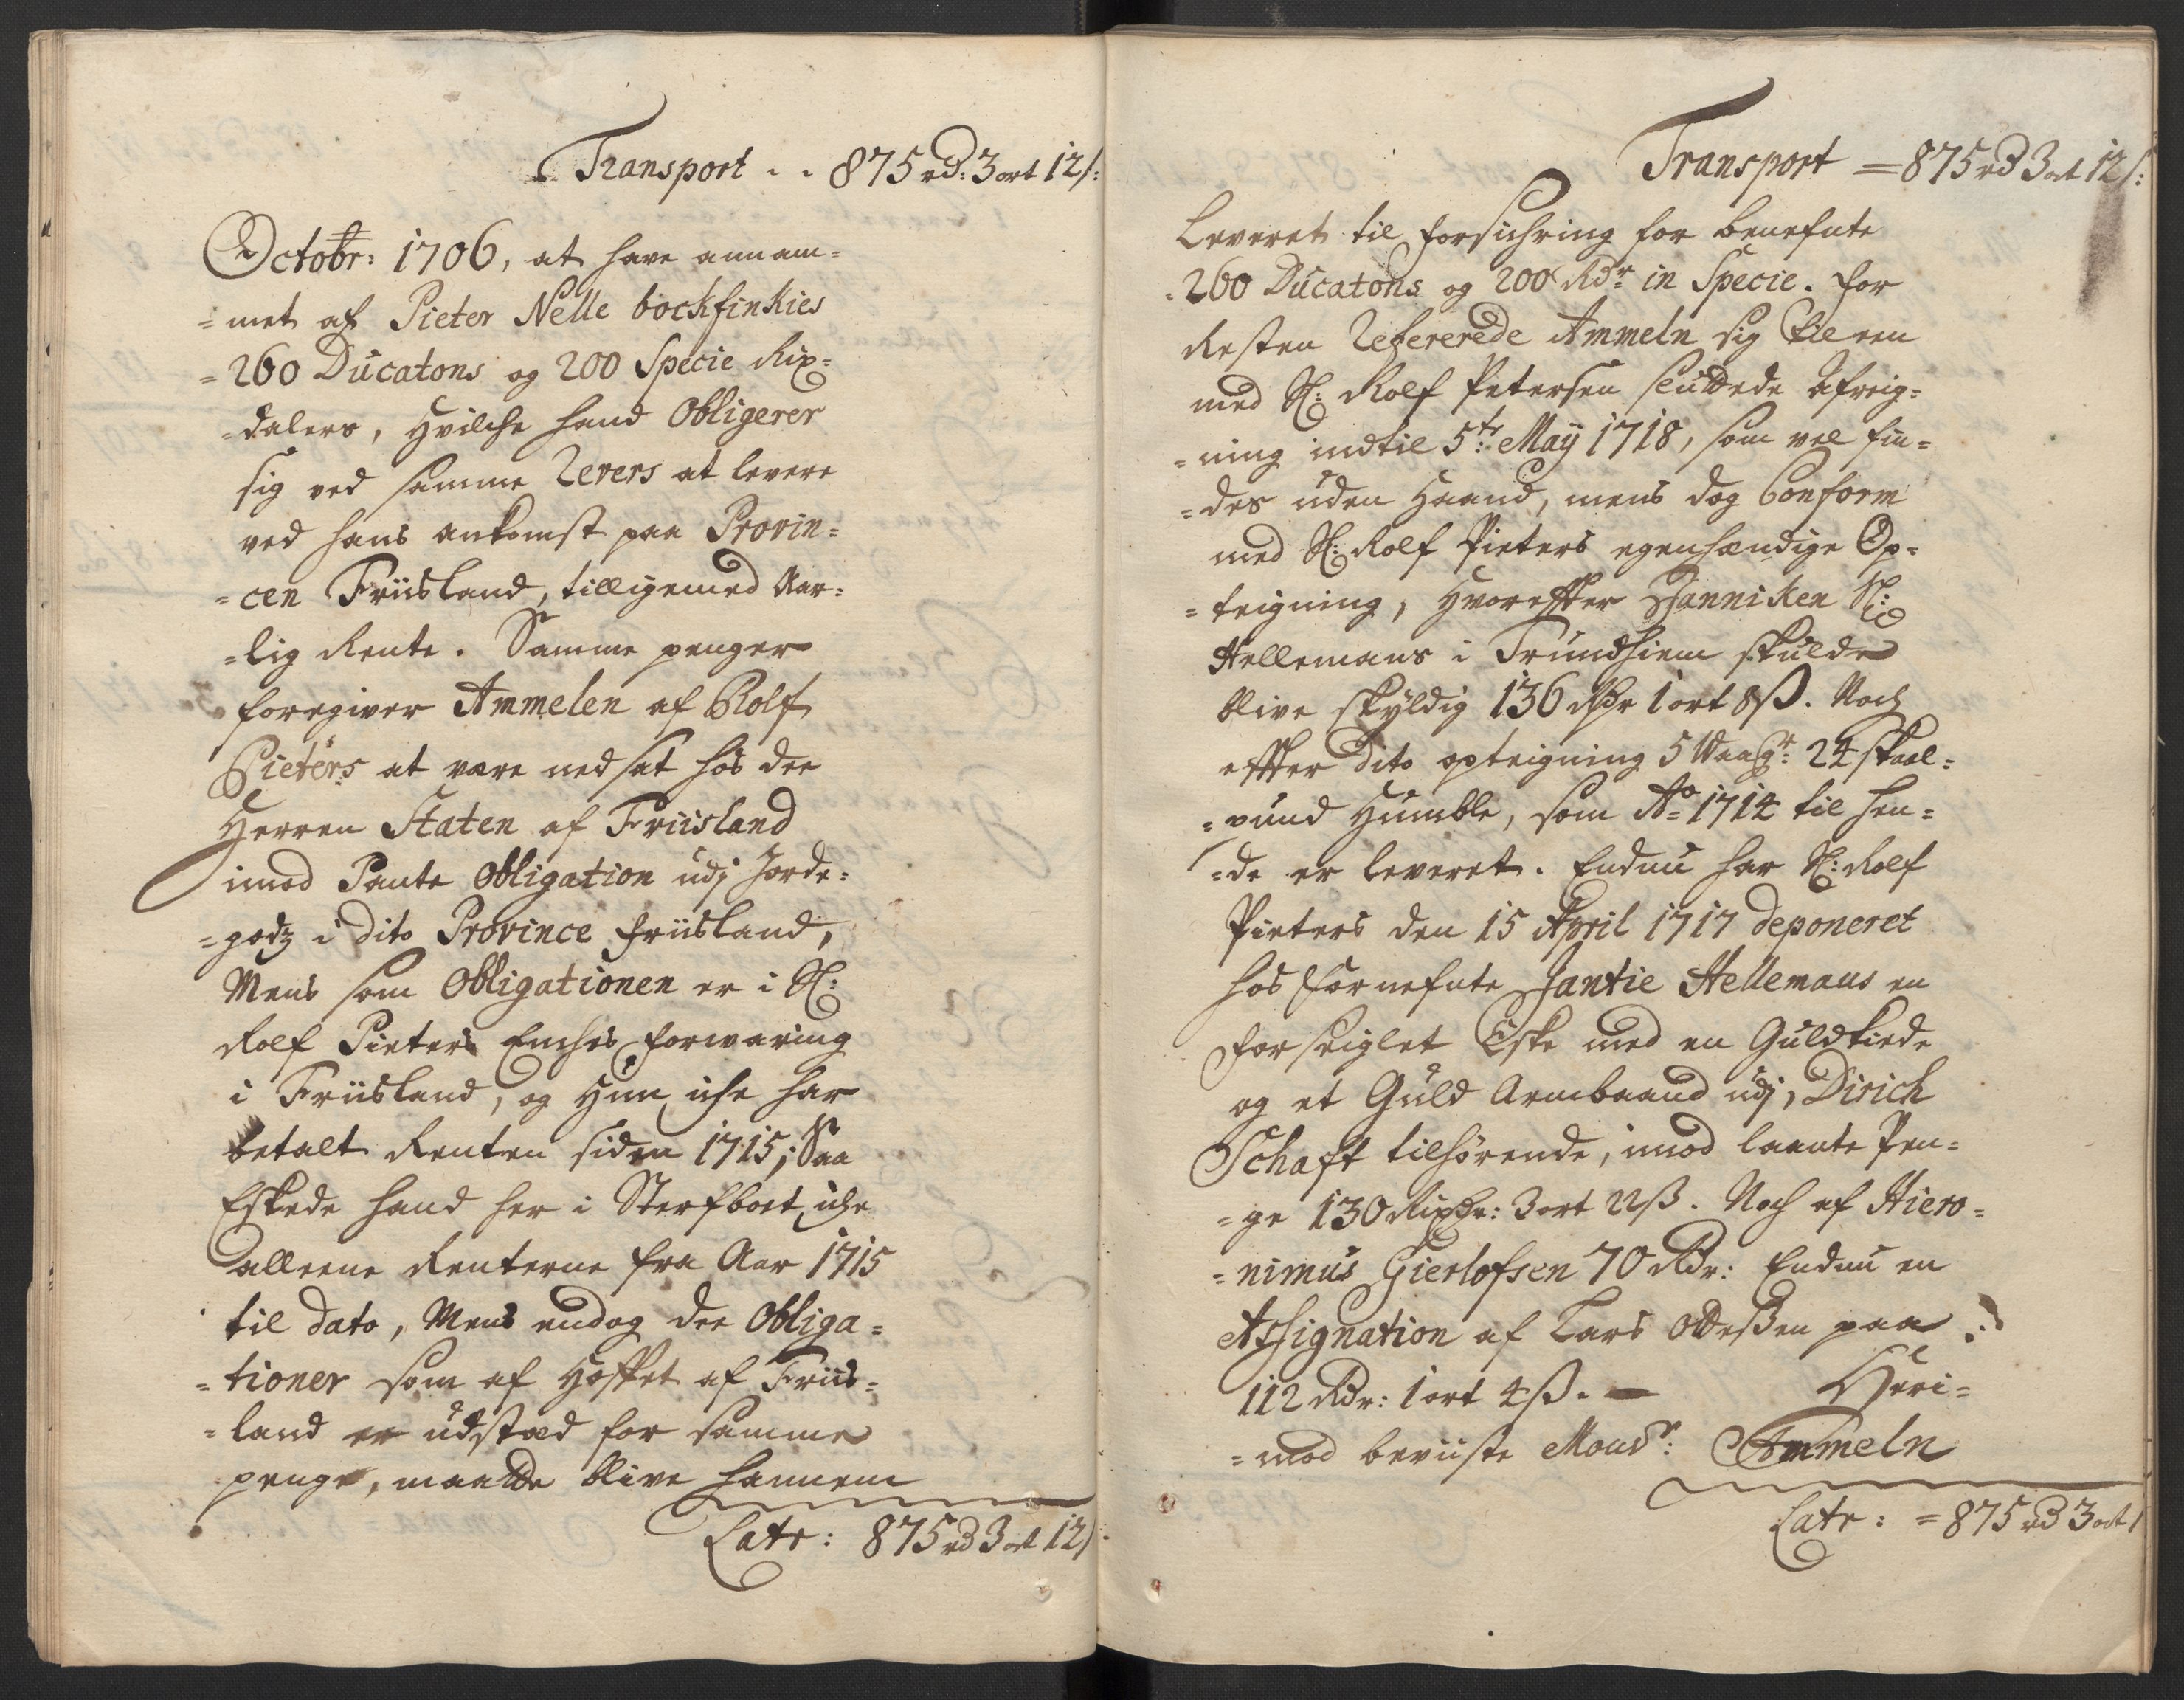 Transport . . 875 rd: 3 ort 12 s:
Octobr: 1706, at have annam=
=met af Pieter Nelle bockfinkies
=260 Ducatons og 200 Specie Rix=
=dalers, hvilche hand Obligerer
sig ved samme Revers at levere
ved hans ankomst paa Provin=
=cen Friisland, tilligemed Aar=
=lig Rente. Samme penger
foregiver Ammelen af Rolf
Pieters at være nedsat hos de
Herren Staten af Friisland
imod Pante Obligation udj Jorde=
=godz i dito Province Friisland,
Mens som Obligationen er i Sl:
Rolf Pieters Enches forwaring
i Friisland, og hun iche har
betalt Renten siden 1715; Saa
Eskede hand her i Sterfboet iche
alleene Renterne fra Aar 1715
til dato, Mens endog de Obliga=
=tioner som af hoffet af Friis=
=land er udstæd for samme
penge, maatte blive hannem
Latr: 875 rd 3 ort 12 s:
Transport = 875 rd 3 ort 12 s:
Leveret til forsichring for benefnte
=260 Ducatons og 200 Rdr: in Specie. for
Resten Refererede Ammeln sig til een
med Sl: Rolf Petersen sluttede Afreig=
=ning indtil 5te: Maÿ 1718, som vel fin=
=des uden Haand, mens dog Conform
med Sl: Rolf Pieters egenhændige Op=
=teigning, hvoreffter Janniken Sl:
Hellemans i Trundhiem skulde
blive skÿldig 136 Rdr 1 ort 8 ß. Noch
effter dito opteigning 5 Waagr: 24 skaal=
=pund Humble, som Ao= 1714 til hen=
=de er leveret. Endnu har Sl: Rolf
Pieters den 15 April 1717 deponeret
hos fornefnte Jantie Hellemans en
forseiglet Eske med en Guldkiede
og et Guld Armbaand udj, Dirich
Schaft tilhørende, imod laante Pen=
=ge 130 Rixdr: 3 ort 22 ß. Noch af Hiero=
=nimus Gierlofsen 70 Rdr: Endnu en
Assignation af Lars Otteßen paa
112 Rdr: 1 ort 4 ß. — Heri=
=mod beviiste Monsr: Ammeln
Latr: = 875 rd 3 ort 1